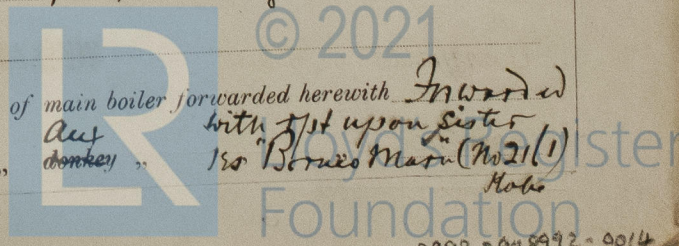 © 2021
of main boiler forwarded herewith Forwarded
Aux with rpt upon sister
„ donkey „ "Borneo Maru" (No 211)
Kobe
LR
Lloyd's Register
Foundation